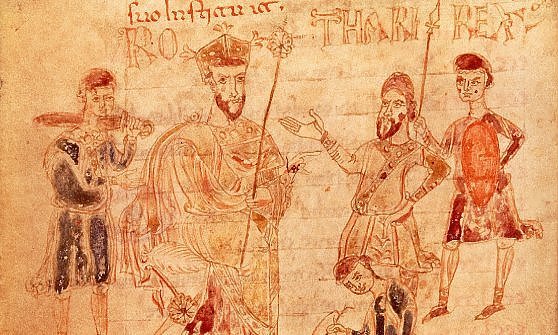 suo
RO THARI REX